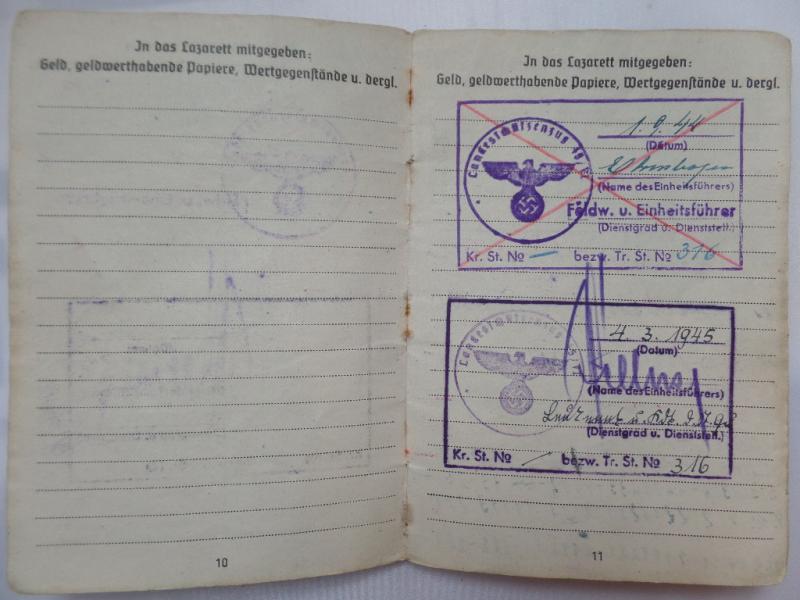 In das Lazarett mitgegeben:
Geld, geldwerthabende Papiere, Wertgegenstände u. dergl.
10
In das Lazarett mitgegeben:
Geld, geldwerthabende Papiere, Wertgegenstände u. dergl.
Landesschützenzug
1.9.44
(Datum)
(Name des Einheitsführers)
Feldw. u. Einheitsführer
(Dienstgrad u. Dienststell.)
Kr. St. No — bezw. Tr. St. No 316
Landesschützenzug
4. 3. 1945
(Datum)
(Name des Einheitsführers)
Leutnant u.
(Dienstgrad u. Dienststell.)
Kr. St. No / bezw. Tr. St. No 316
11